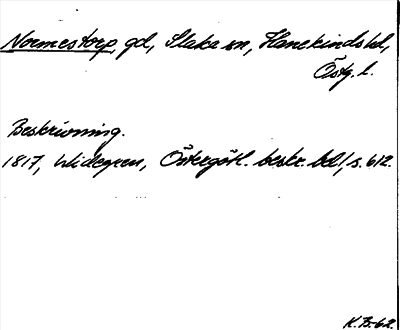 Normestorp, gd, Slaka sn, Hanekinds hd,
Östg. l.
Beskrivning.
1817, Widegren, Östergötl. beskr. bd 1, s. 612.
K.B-62.